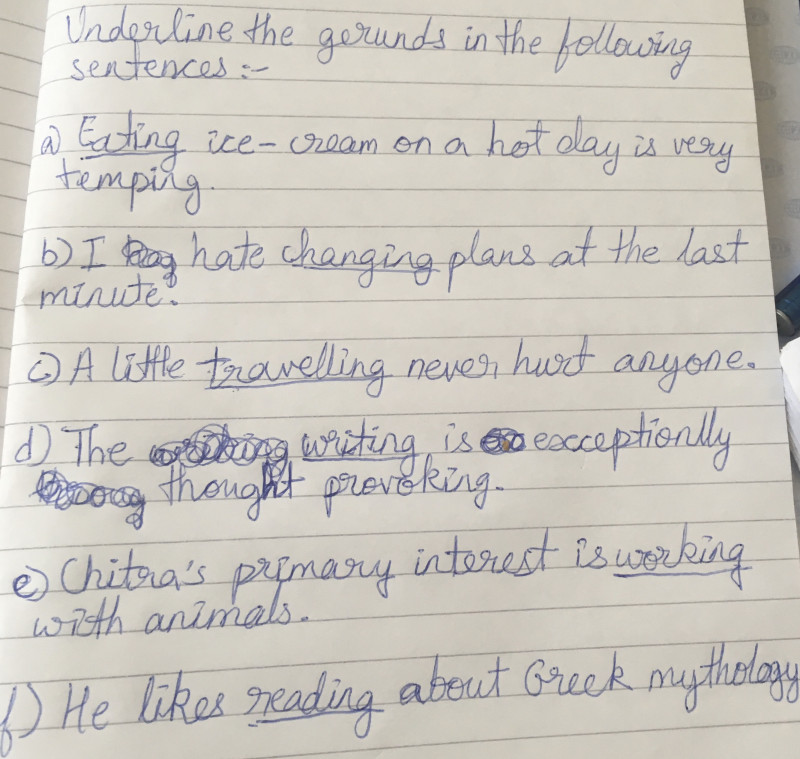 Underline the gerunds in the following
sentences :-
a) Eating ice-cream on a hot day is very
temping.
b) I hate changing plans at the last
minute.
c) A little travelling never hurt anyone.
d) The writing is excceptionlly
thought provoking.
e) Chitra's primary interest is working
with animals.
f) He likes reading about Greek mythology